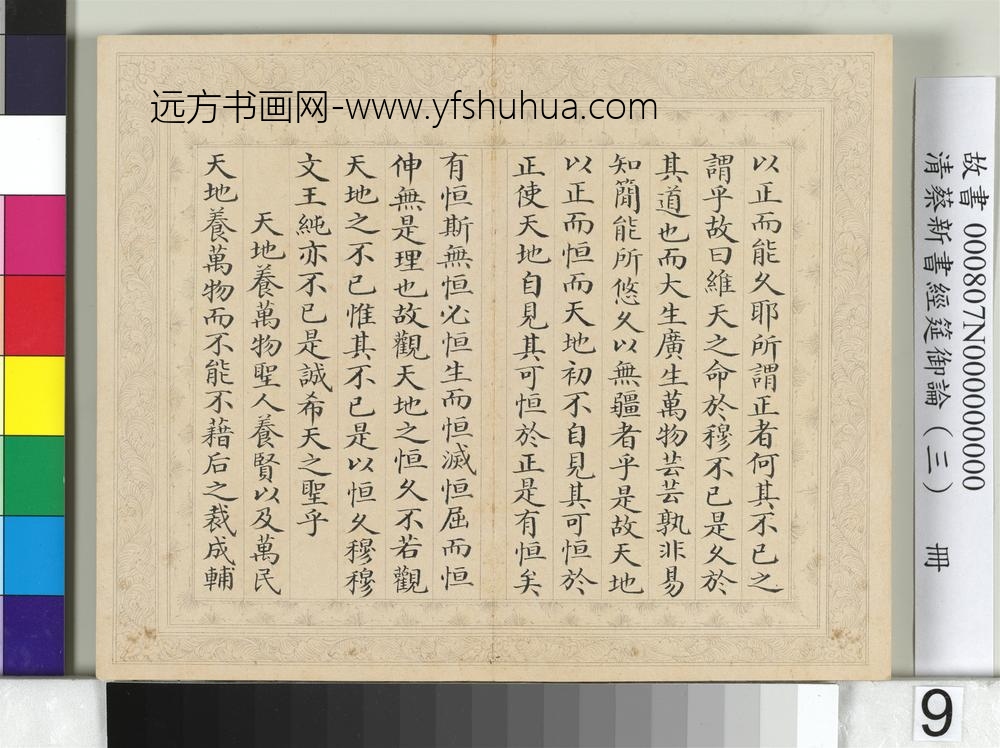 远方书画网-www.yfshuhua.com
以正而能久耶所謂正者何其不已之
謂乎故曰維天之命於穆不已是久於
其道也而大生廣生萬物芸芸孰非易
知簡能所悠久以無疆者乎是故天地
以正而恒而天地初不自見其可恒於
正使天地自見其可恒於正是有恒矣
有恒斯無恒必恒生而恒滅恒屈而恒
伸無是理也故觀天地之恒久不若觀
天地之不已惟其不已是以恒久穆穆
文王純亦不已是誠希天之聖乎
天地養萬物聖人養賢以及萬民
天地養萬物而不能不藉后之裁成輔
故書 000807N000000000
清蔡新書經筵御論（三） 冊
9